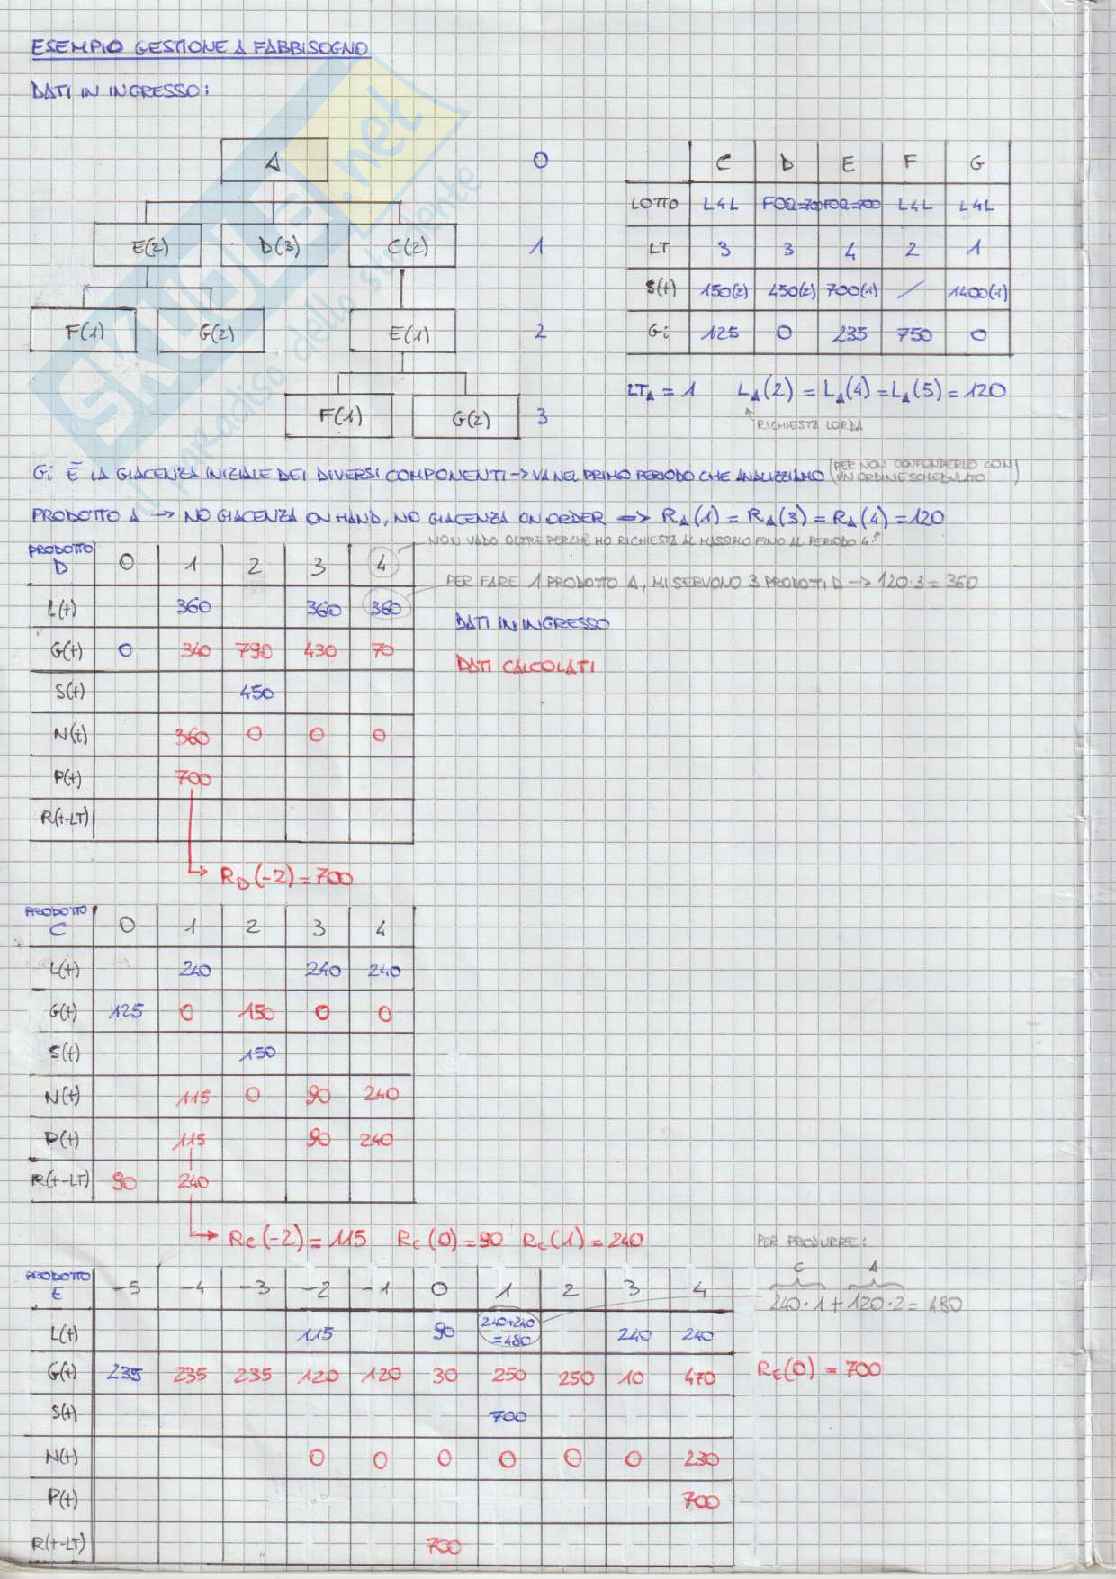 ESEMPIO GESTIONE A FABBISOGNO
DATI IN INGRESSO:
A 0
E(2) D(3) C(2) 1
F(1) G(2) E(1) 2
F(1) G(2) 3
C D E F G
LOTTO L4L FOQ=700 FOQ=700 L4L L4L
LT 3 3 4 2 1
S(t) 150(2) 450(2) 700(1) / 1400(1)
Gi 125 0 235 750 0
LTA = 1 LA(2) = LA(4) = LA(5) = 120
RICHIESTA LORDA
Gi È LA GIACENZA INIZIALE DEI DIVERSI COMPONENTI → VA NEL PRIMO PERIODO CHE ANALIZZIAMO (PER NON CONFONDERLO CON
UN ORDINE SCHEDULATO)
PRODOTTO A → NO GIACENZA ON HAND, NO GIACENZA ON ORDER ⇔ RA(1) = RA(3) = RA(4) = 120
NON VADO OLTRE PERCHÉ HO RICHIESTA AL MASSIMO FINO AL PERIODO 4
PRODOTTO D 0 1 2 3 4
PER FARE 1 PRODOTTO A, MI SERVONO 3 PRODOTTI D → 120·3 = 360
L(t) 360 360 360
DATI IN INGRESSO
G(t) 0 340 790 430 70
DATI CALCOLATI
S(t) 450
N(t) 360 0 0 0
P(t) 700
R(t-LT)
RD(-2) = 700
PRODOTTO C 0 1 2 3 4
L(t) 240 240 240
G(t) 125 0 150 0 0
S(t) 150
N(t) 115 0 90 240
P(t) 115 90 240
R(t-LT) 90 240
RC(-2) = 115 RC(0) = 90 RC(1) = 240
PER PRODURRE:
C A
240·1 + 120·2 = 480
PRODOTTO E -5 -4 -3 -2 -1 0 1 2 3 4
L(t) 115 90 240+240 =480 240 240
G(t) 235 235 235 120 120 30 250 250 10 470
RE(0) = 700
S(t) 700
N(t) 0 0 0 0 0 0 230
P(t) 700
R(t-LT) 700
SKUOLA.net
il paradiso dello studente